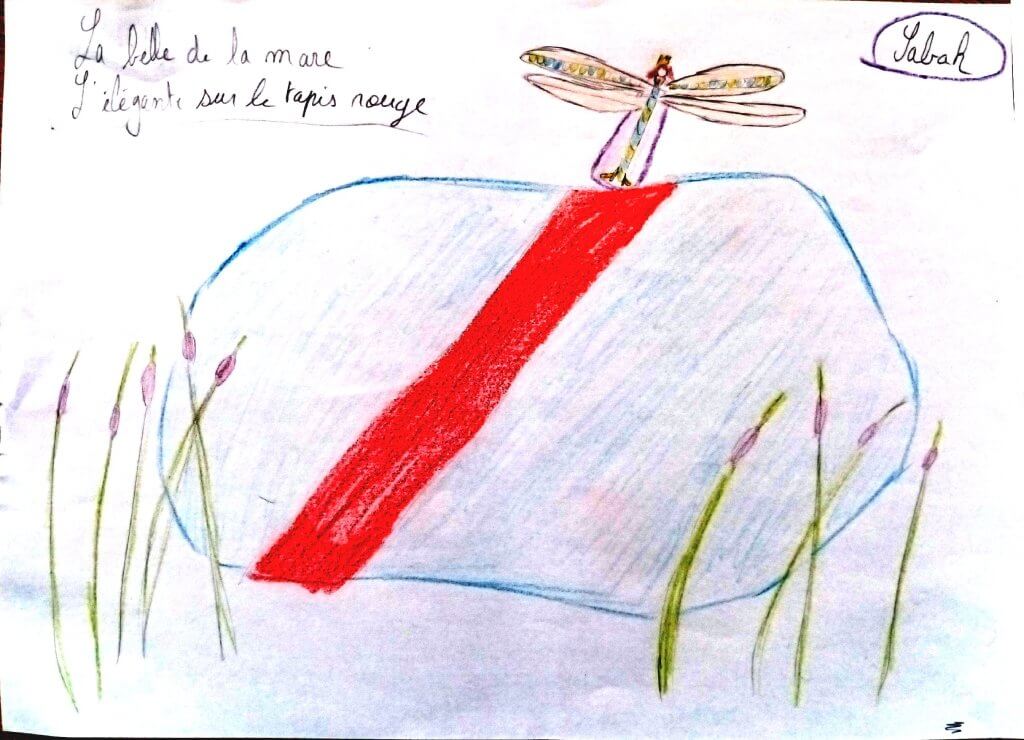 La belle de la mare
L'élégante sur le tapis rouge
Sabah